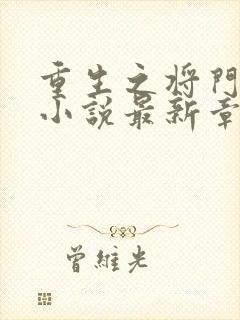 重生之将門
小説最新章
曾維光